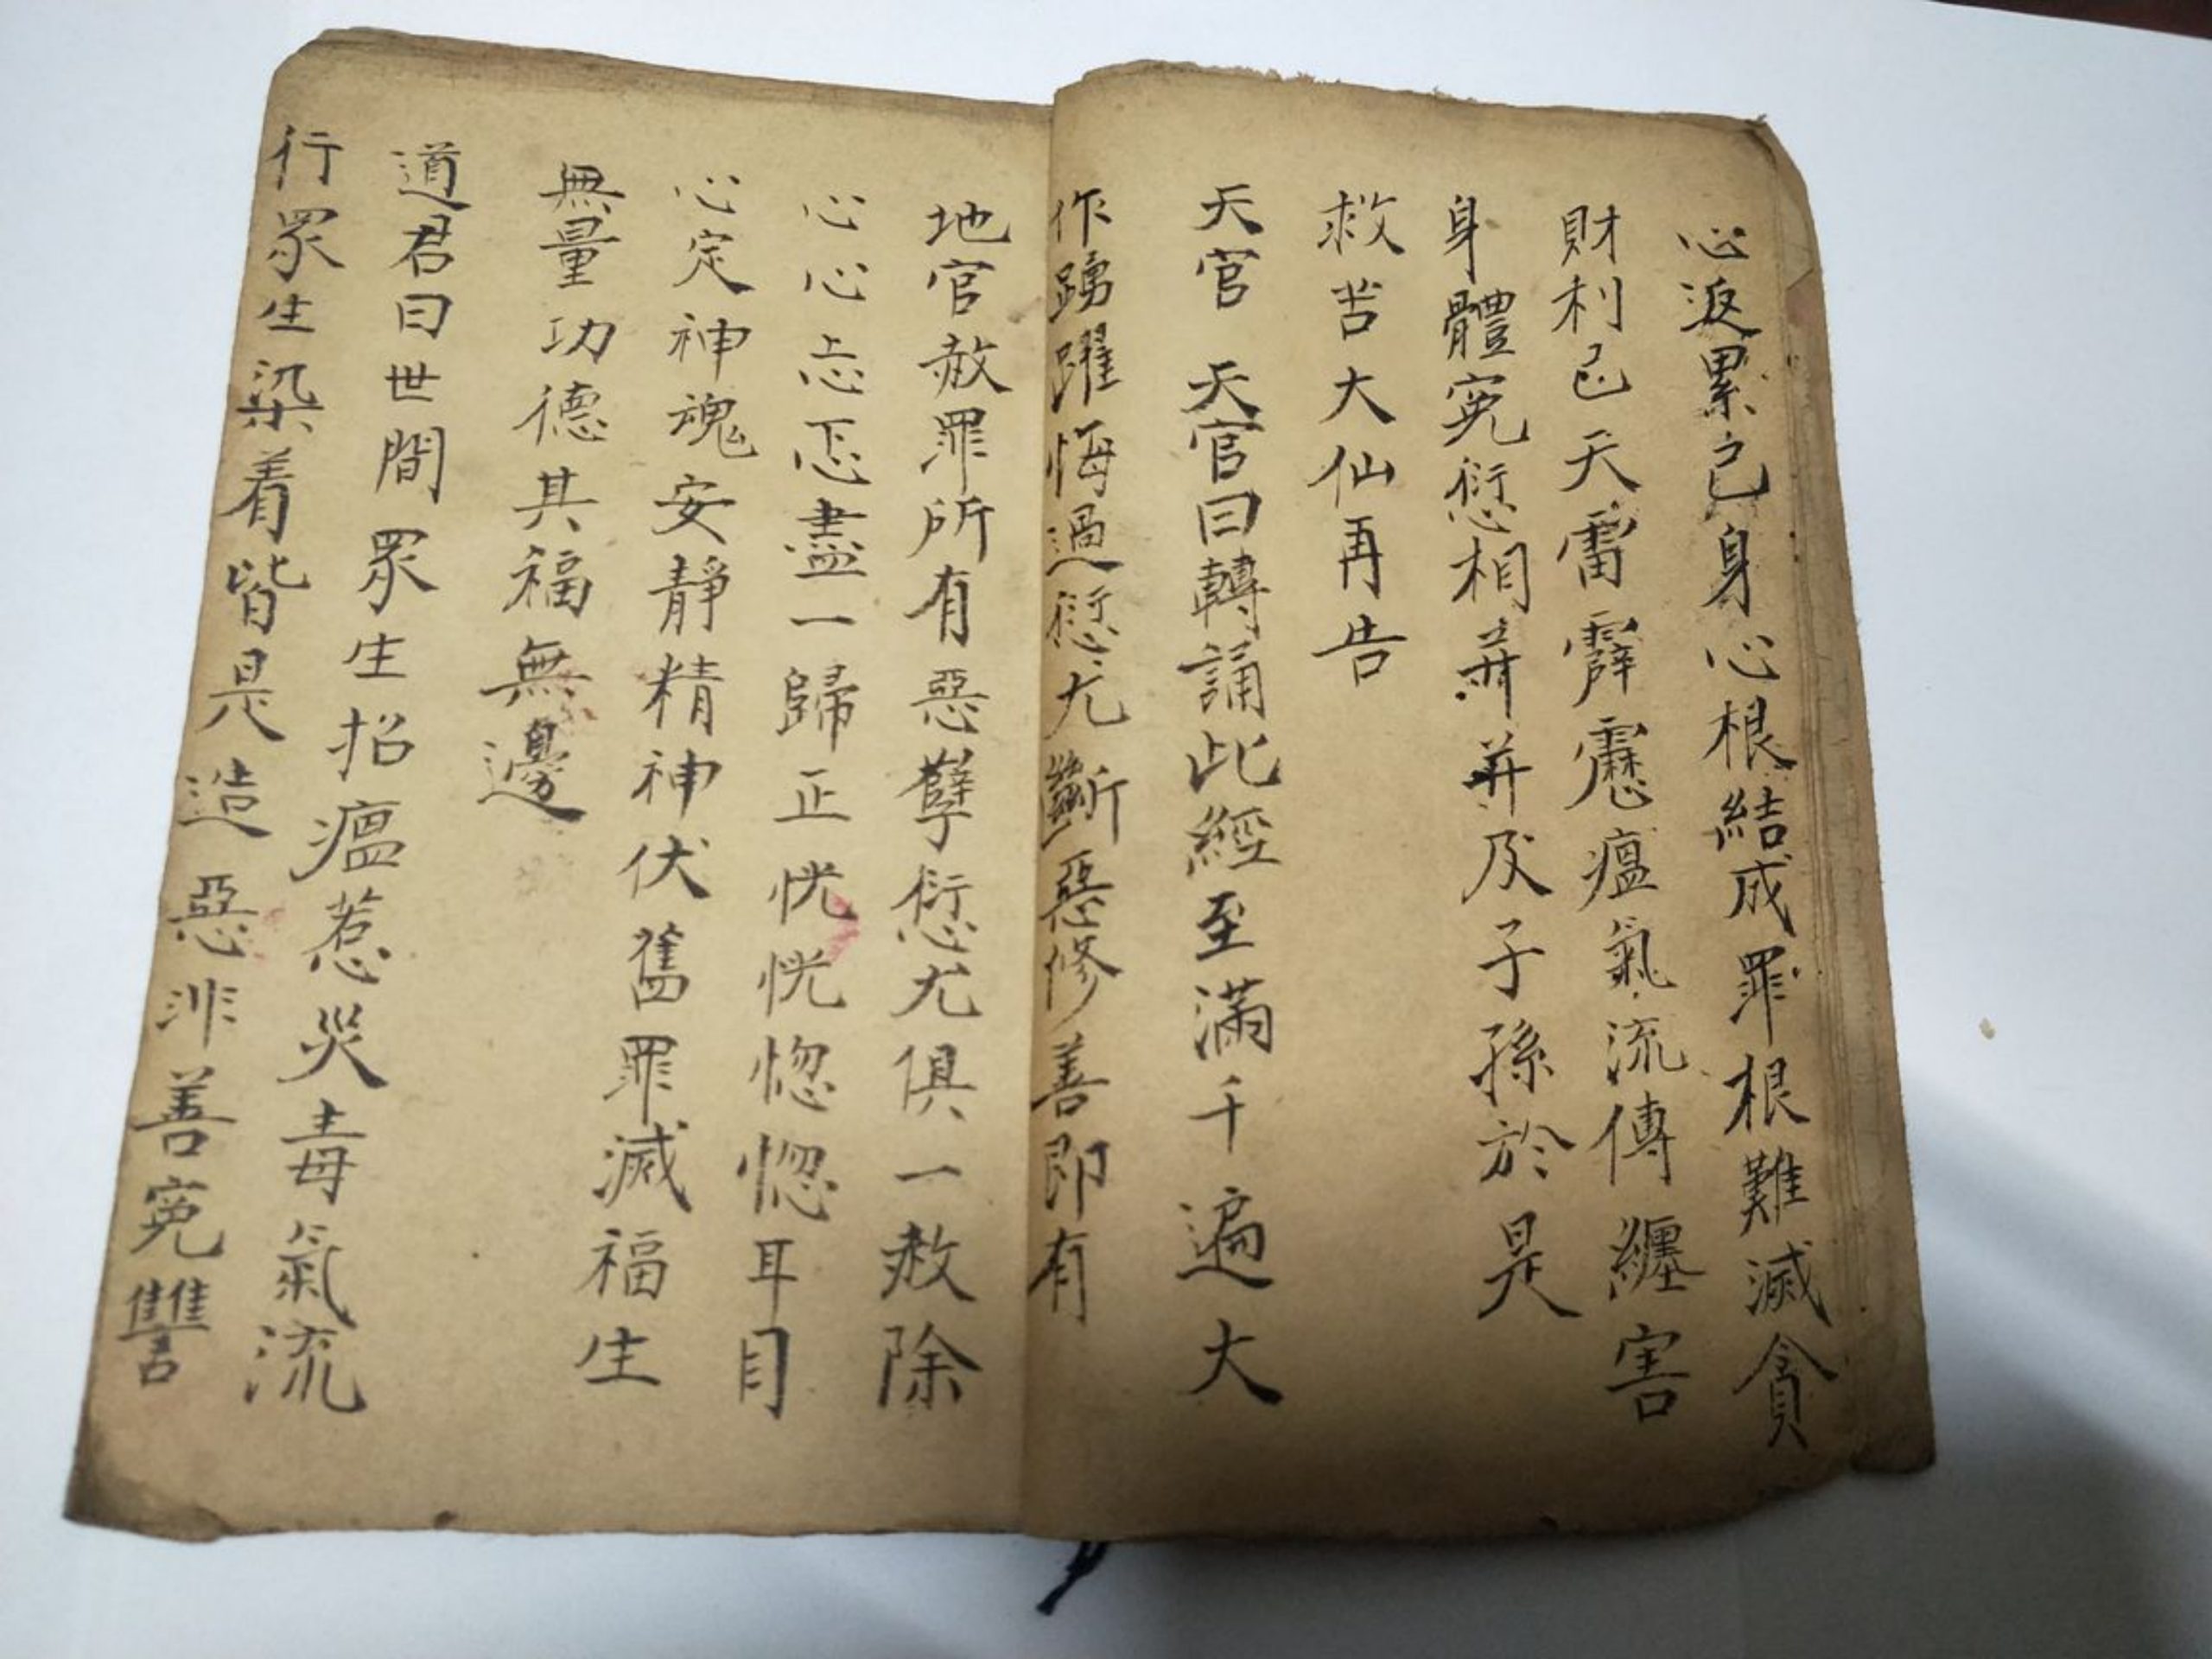 心返累己身心根結成罪根難滅貪
財利己天雷霹靂瘟氣流傳纏害
身體寃愆相并并及子孫於是
救苦大仙再告
天官 天官曰轉誦此經至滿千遍大
作踴躍悔過愆尤斷惡修善即有
地官赦罪所有惡孽愆尤俱一赦除
心心忐忑盡一歸正恍恍惚惚耳目
心定神魂安靜精神伏舊罪滅福生
無量功德其福無邊
道君曰世間眾生招瘟惹災毒氣流
行眾生染着皆是造惡非善寃讐